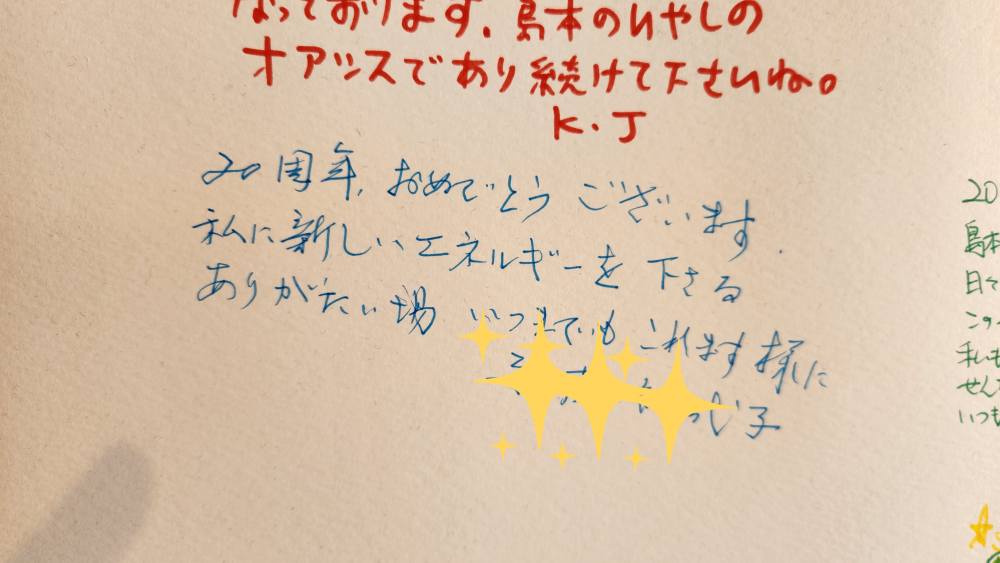 なっております。島本のいやしの
オアシスであり続けて下さいね。
K.J
20周年、おめでとうございます.
私に新しいエネルギーを下さる
ありがたい場 いつまでもこれます様に
子
20
島本
日々
この
私も
せん
いつも